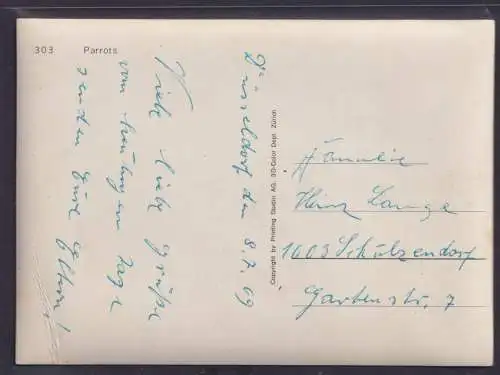 303 Parrots
Düsseldorf den 8.7.69
Viele liebe Grüße
vom heutigen Tage
senden Eure Eltern!
Copyright by Printing Studio AG, 3D-Color Dept. Zürich
Familie
Heinz Lange
1603 Schulzendorf
Gartenstr. 7